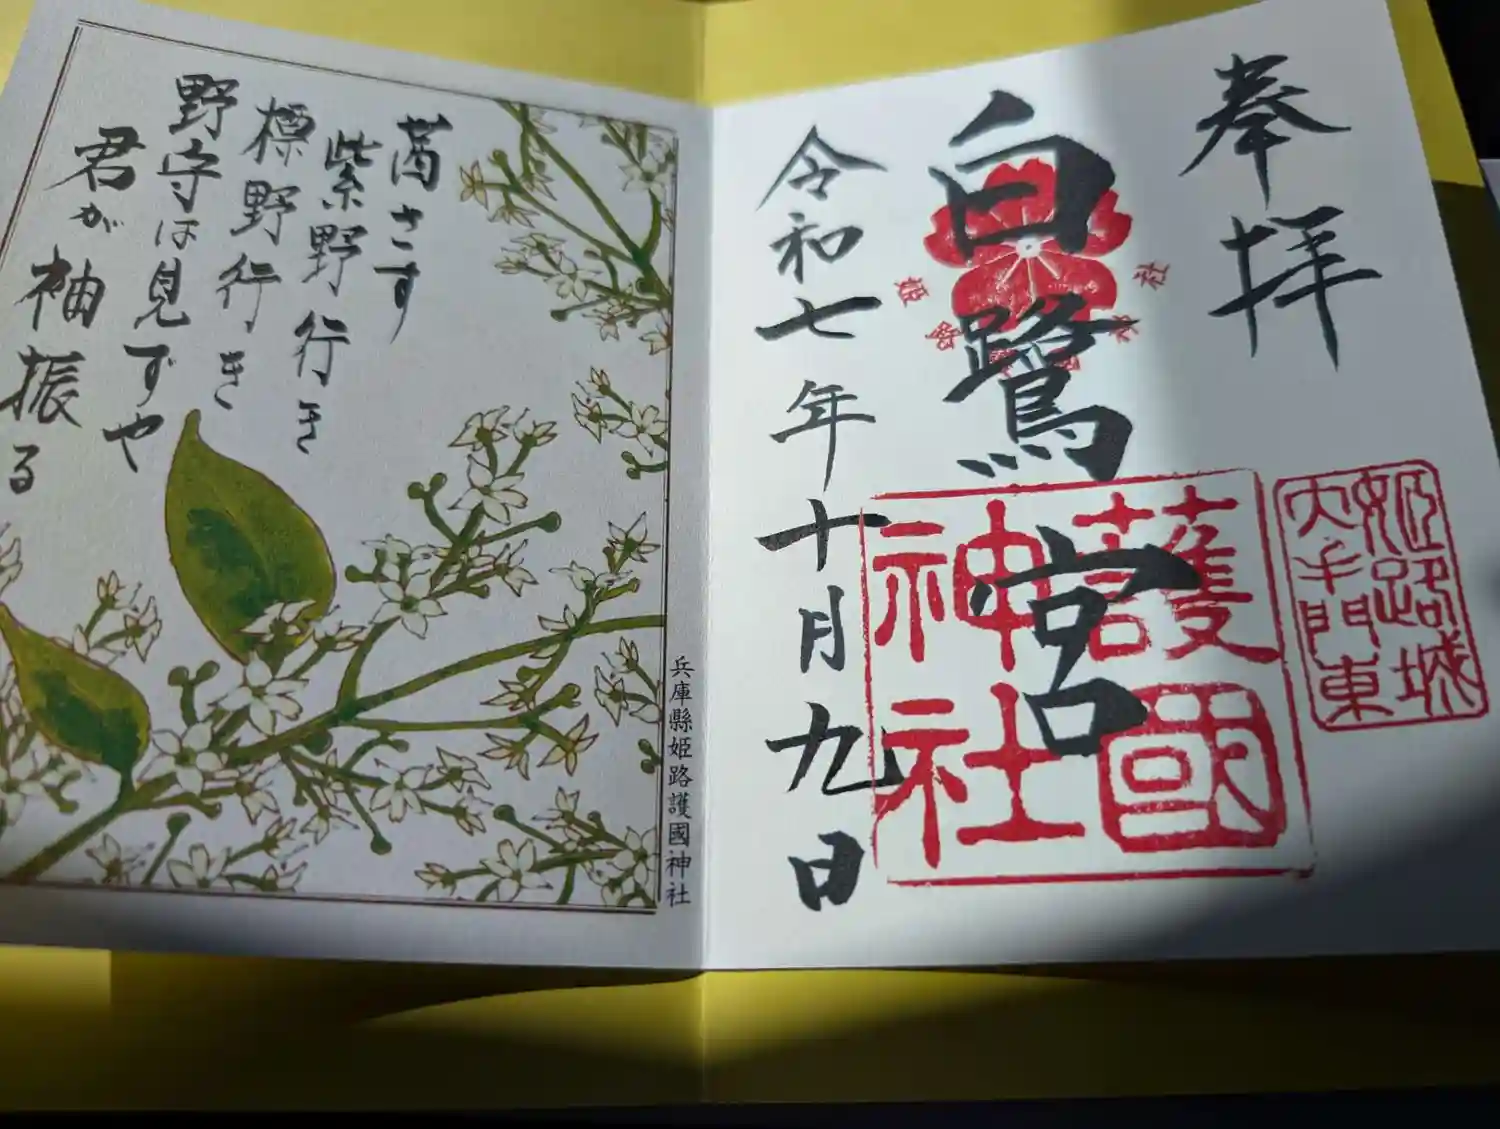 奉拝
白鷺宮
令和七年十月九日
護國
神社
姫路城
大手門東
茜さす
紫野行き
標野行き
野守は見ずや
君が袖振る
兵庫縣姫路護國神社